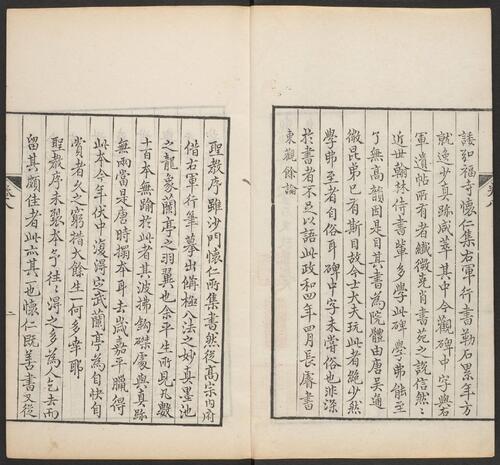 諉弘福寺懷仁集右軍行書勒石累年方
就逸少真跡咸萃其中今觀碑中字與右
軍遺帖所有者纖微克肖書苑之說信然〻
近世翰林侍書輩多學此碑學弗能至
了無高韻因是目其書為院體由唐吳通
微昆弟已有斯目故今士大夫玩此者絕少然
學弗至者自俗耳碑中字未嘗俗也非深
於書者不足以語此政和四年四月長睿書
東觀餘論
聖教序雖沙門懷仁所集書然從高宗內府
借右軍行筆摹出備極八法之妙真墨池
之龍象蘭亭之羽翼也余平生所見凡數
十百本無踰於此者其波拂鉤磔處與真跡
無兩當是唐時搨本耳去歲嘉平臘得
此本今年伏中復得定武蘭亭為自快自
賞者久之窮措大餘生一何多幸耶
聖教序未裂本予往〻得之多為人乞去而
留其頗佳者此亦其一也懷仁既善書又從